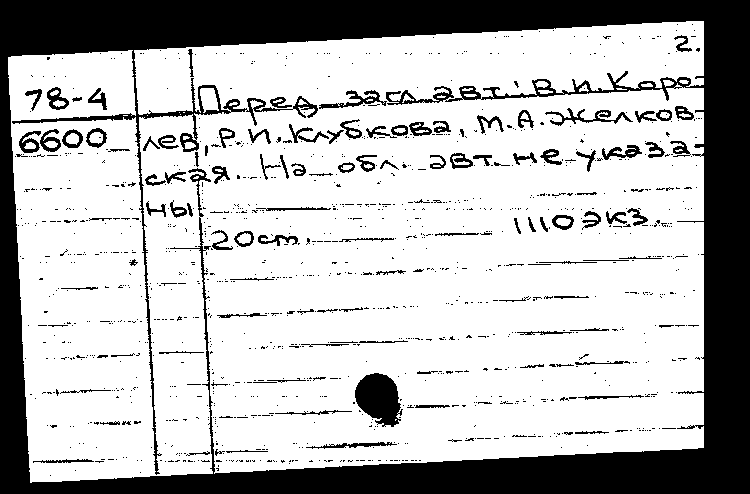 2.
78-4 Перед загл. авт.: В.И.Коро-
6600 лев, Р.И.Клубкова, М.А.Желков-
ская. На обл. авт. не указа-
ны.
20 ст. 1110 экз.